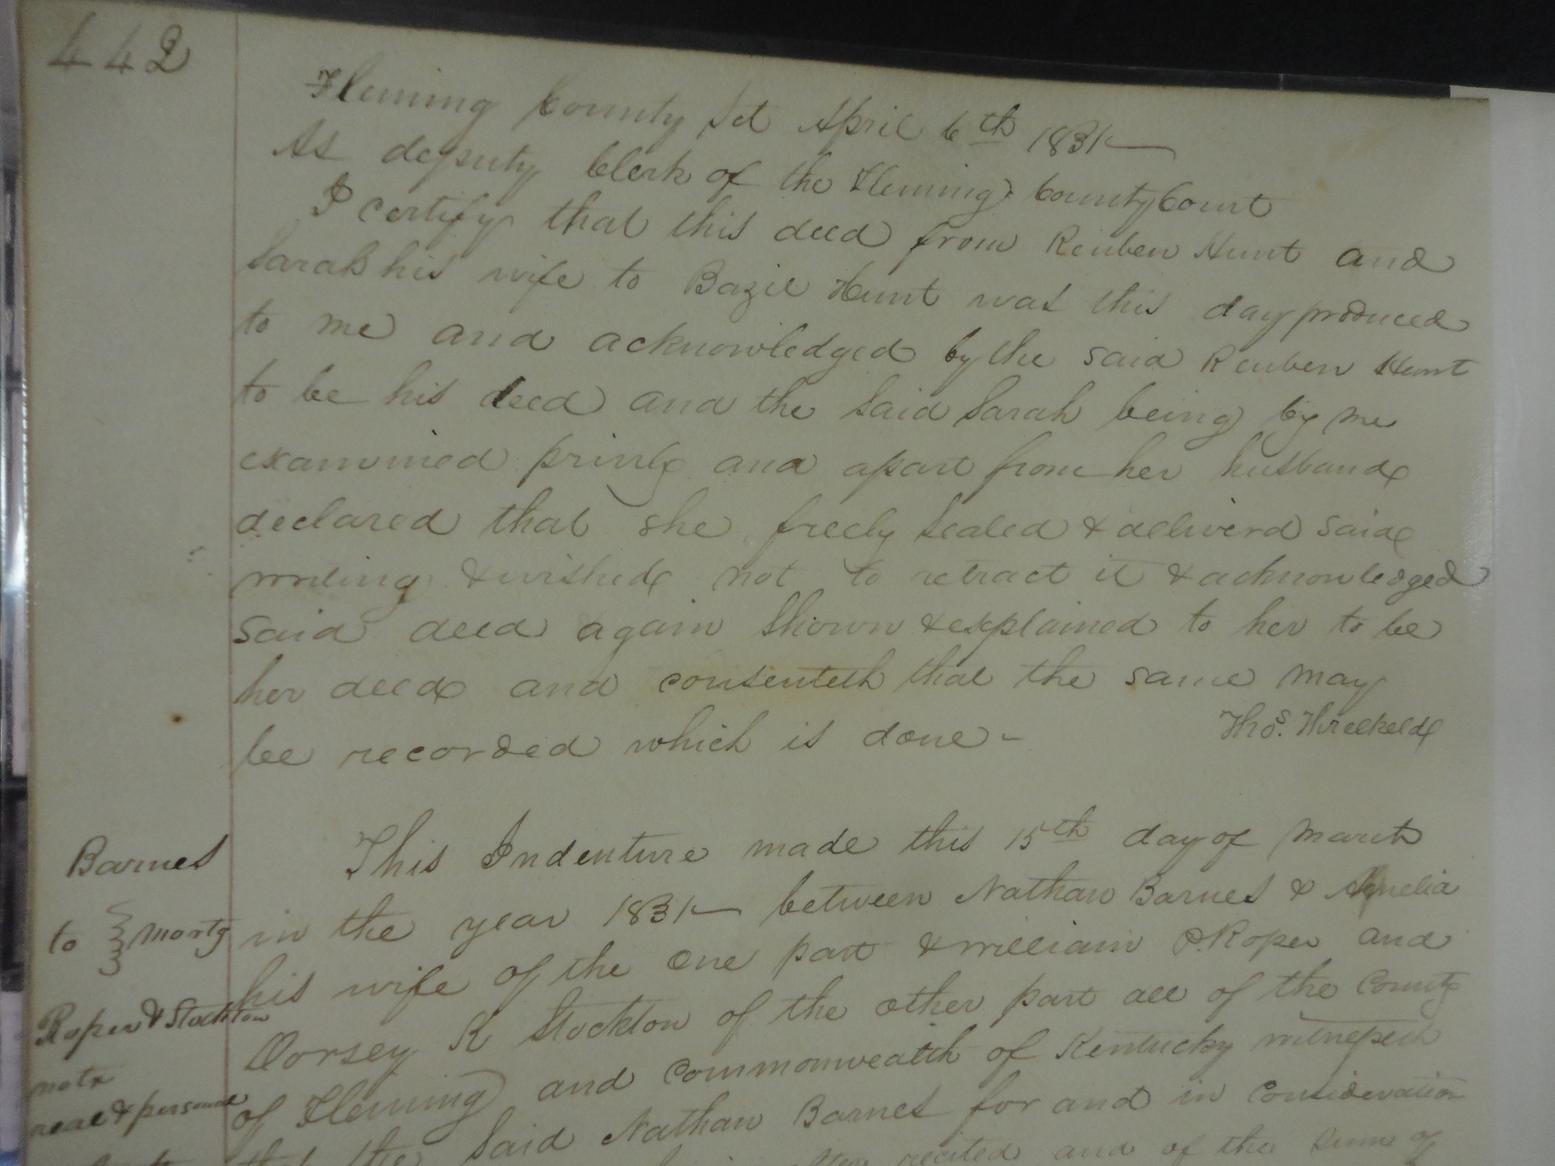 442
Fleming County Sct April 6th 1831
As deputy Clerk of the Fleming County Court
I certify that this deed from Reuben Hunt and
Sarah his wife to Bazil Hunt was this day produced
to me and acknowledged by the said Reuben Hunt
to be his deed and the said Sarah being by me
examined privily and apart from her husband
declared that she freely sealed & deliverd said
writing & wished not to retract it & acknowledged
said deed again shown & explained to her to be
her deed and consenteth that the same may
be recorded which is done - Thos. Threlkeld
Barnes
to } Mortg
Roper & Stockton
note
real & personal
This Indenture made this 15th day of March
in the year 1831 between Nathan Barnes & Amelia
his wife of the one part & William P. Roper and
Dorsey K Stockton of the other part all of the County
of Fleming and Commonwealth of Kentucky witnesseth
that the said Nathan Barnes for and in Consideration
recited and of the sum of